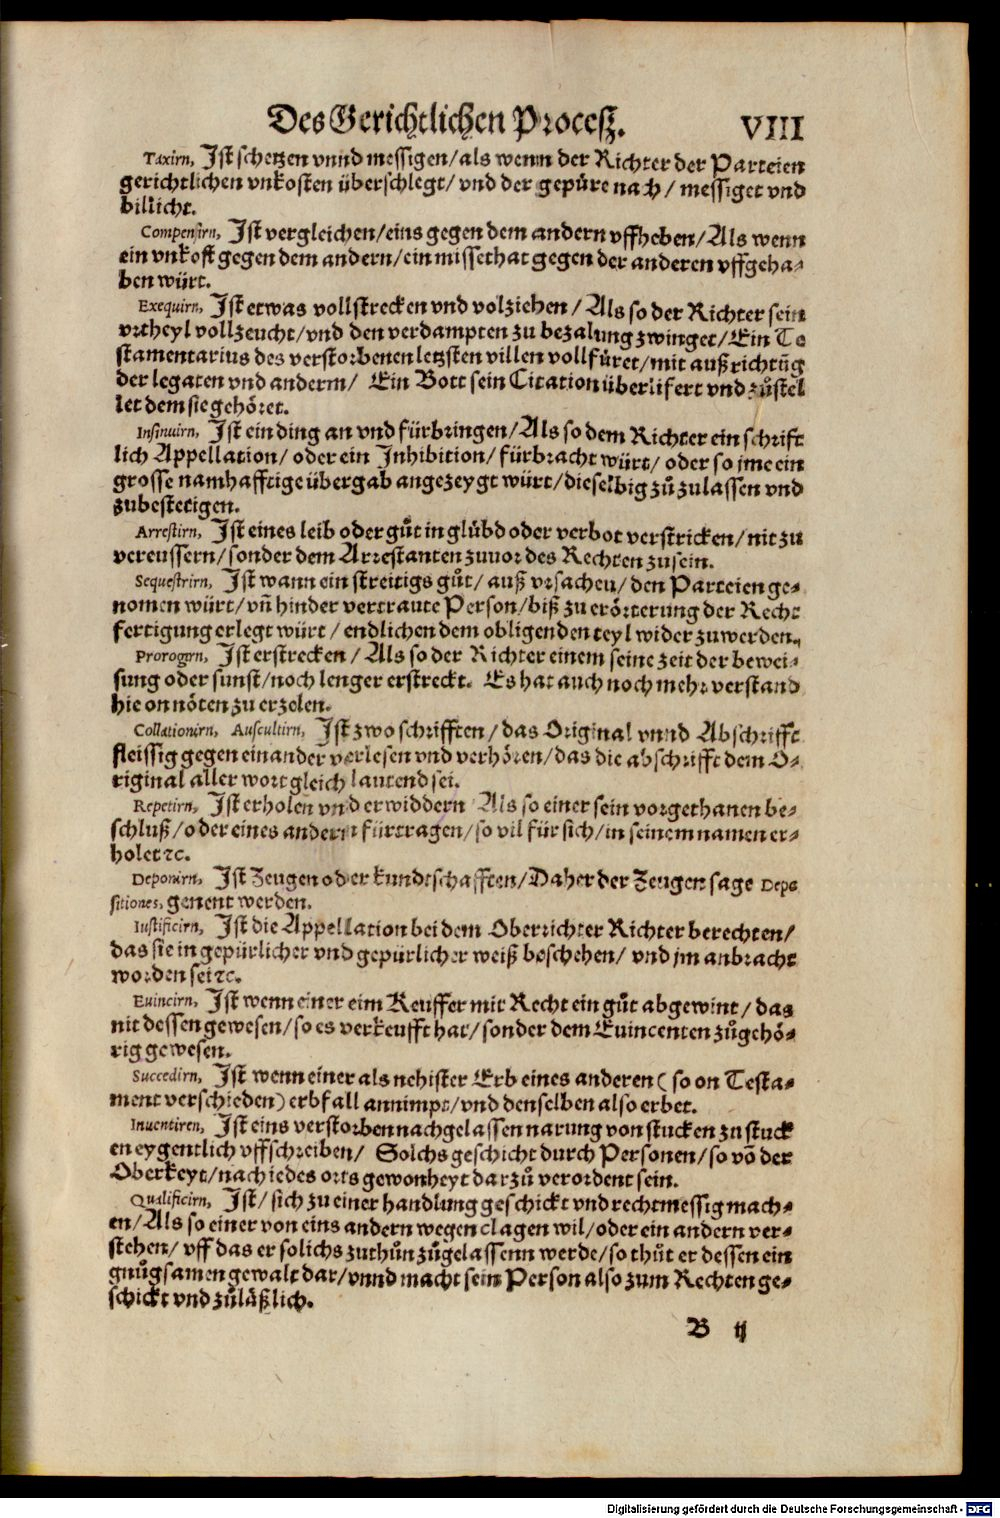 Des Gerichtlichen Procesz. VIII
Taxirn, Ist schetzen vnnd messigen/als wenn der Richter der Parteien
gerichtlichen vnkosten überschlegt/vnd der gepüre nach/ messiget vnd
billicht.
Compensirn, Ist vergleichen/eins gegen dem andern vffheben/Als wenn
ein vnkost gegen dem andern/ein missethat gegen der anderen vffgeha-
ben würt.
Exequirn, Ist etwas vollstrecken vnd volziehen/ Als so der Richter sein
vrtheyl vollzeucht/vnd den verdampten zu bezalung zwinget/Ein Te
stamentarius des verstorbenen letzsten villen vollfüret/mit außrichtũg
der legaten vnd anderm/ Ein Bott sein Citation überlifert vnd zůstel
let dem sie gehöret.
Insinuirn, Ist ein ding an vnd fürbringen/Als so dem Richter ein schrift
lich Appellation/oder ein Inhibition/fürbracht würt/oder so jme ein
grosse namhafftige übergab angezeygt würt/dieselbig zů zulassen vnd
zubestetigen.
Arrestirn, Ist eines leib oder gůt in glübd oder verbot verstricken/nit zu
vereussern/sonder dem Arrestanten zuuor des Rechten zu sein.
Sequestrirn, Ist wann ein streitigs gůt/ auß vrsachen/den Parteien ge-
nomen würt/vñ hinder vertraute Person/biß zu erörterung der Recht
fertigung erlegt würt/ endlichen dem obligenden teyl wider zuwerden.
Prorogirn, Ist erstrecken/ Als so der Richter einem seine zeit der bewei-
sung oder sunst/noch lenger erstreckt. Es hat auch noch mehr verstand
hie on nöten zu erzelen.
Collationirn, Auscultirn, Ist zwo schrifften/das Original vnnd Abschrifft
fleissig gegen einander verlesen vnd verhören/das die abschrifft dem O-
riginal aller wort gleich lautend sei.
Repetirn, Ist erholen vnd erwiddern Als so einer sein vorgethanen be-
schluß/oder eines andern fürtragen/so vil für sich/in seinem namen er-
holet ꝛc.
Deponirn, Ist Zeugen oder kundtschafften/Daher der Zeugen sage Depo
sitiones, genent werden.
Iustificirn, Ist die Appellation bei dem Oberrichter Richter berechten/
das sie in gepürlicher vnd gepürlicher weiß beschehen/ vnd jm anbracht
worden sei ꝛc.
Euincirn, Ist wenn einer eim Keuffer mit Recht ein gůt abgewint/das
nit dessen gewesen/so es verkeufft hat/sonder dem Euincenten zůgehö-
rig gewesen.
Succedirn, Ist wenn einer als nehister Erb eines anderen (so on Testa-
ment verschieden) erbfall annimpt/vnd denselben also erbet.
Inuentiren, Ist eins verstorben nachgelassen narung von stucken zu stuck
en eygentlich vffschreiben/ Solchs geschicht durch Personen/so võ der
Oberkeyt/nach jedes orts gewonheyt darzů verordent sein.
Qualificirn, Ist/sich zu einer handlung geschickt vnd rechtmessig mach-
en/Als so einer von eins andern wegen clagen wil/oder ein andern ver-
stehen/vff das er solichs zuthůn zůgelassenn werde/so thůt er dessen ein
gnůgsamen gewalt dar/vnnd macht sein Person also zum Rechten ge-
schickt vnd zůläßlich.
B ij
Digitalisierung gefördert durch die Deutsche Forschungsgemeinschaft - DFG